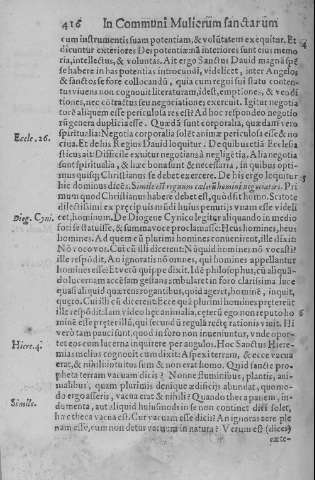 416 In Communi Mulierum sanctarum
cum instrumentis suam potentiam, & volūtatem exequitur. Et
dicuntur exteriores Dei potentiæ interiores sunt eius memo
ria, intellectus, & voluntas. Ait ergo Sanctus Dauid magnā spē
se habere in has potentias introeundi, videlicet, inter Angelos
& sanctos se fore collocandū, quia cum regni sui statu conten-
tus viuens non cognouit literaturam, id est, emptione, & vendi
tiones, nec cōtractus seu negociationes exercuit. Igitur negotia
turæ aliquem esse periculosa res est? Ad hoc respondeo negotio
rū genera duplicia esse. Quædā sunt corporalia, quædam vero
spiritualia: Negotia corporalia solēt animæ periculosa esse & no
Eccle. 26. ciua. Et de his Regius Dauid loquitur. De quibus etiā Ecclesia
sticus ait: Difficile exuitur negotians à negligētia. Alia negotia
sunt spiritualia, & hæc bona sunt & necessaria, in quibus opti-
mus quisq; Christianus se debet exercere. De his ergo loquitur
hic dominus dicēs. Simile est regnum cælorū homini negociatori. Pri
mum quod Christianus habere debet est, quòd sit homo. Scitote
defectissimi ex præcipuis mūdi huius penurijs vnam esse videli
Diog. Cyni. cet, hominum. De Diogene Cynico legitur aliquando in medio
fori se statuisse, & summa voce proclamasse: Heus homines, heus
homines. Ad quem cū plurimi homines contenirent, ille dixit:
Nō vos voco. Cui cū illi dicerent: Nūquid homines nō vocasti?
ille respōdit, An ignoratis nō omnes, qui homines appellantur
homines esse: Et verū quippe dixit. Idē philosophus, cū aliquā-
do lucernam accēsam gestans ambularet in foro clarissima luce
quasi aliquid quærens rogantibus, quid ageret, hominē, inquit,
quęro. Cui illi cū dicerent: Ecce quā plurimi homines prætereūt
ille respōdit. Iam video hęc animalia, ceterū ego non reputo ho
minē esse præter illū, qui secundū regulā rectę rationis viuit. Hi
verò tam pauci sunt, quod in foro non inueniuntur, vnde opor-
Hiere. 4. tet eos cum lucerna inquirere per angulos. Hoc Sanctus Hiere-
mias melius cognouit cum dixit: Aspexi terram, & ecce vacua
erat, & nihili: intuitus sum & non erat homo. Quid sancte pro-
pheta terram vacuam dicis? Nonne fluminibus, plantis, ani-
malibus, quam plurimis denique ædificijs abundat, quomo-
Simile. do ergo asseris, vacua erat & nihili? Quando thecapanem, in-
dumenta, aut aliquid huiusmodi in se non continet dici solet,
hæc theca vacua est. Cur vacuam esse dicis? An ignoras aere ple
nam esse, cum non detur vacuum in natura? Verum est (dices)
exte-
4
5
6